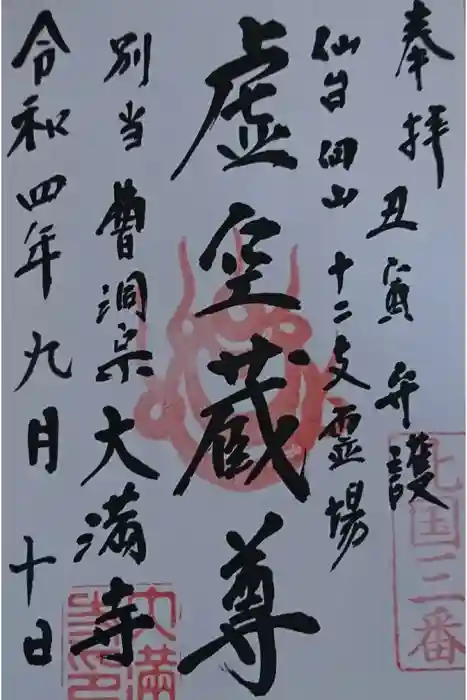 奉拝
丑寅弁護
仙台四山十二支霊場
虚空蔵尊
別当曹洞宗大満寺
令和四年九月十日
北国三番
大満寺印